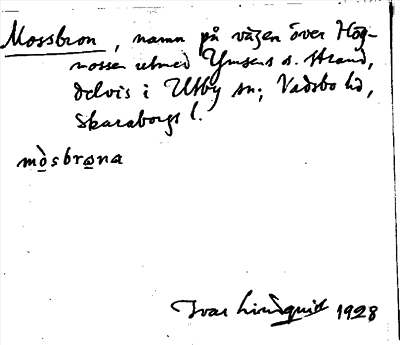 Mossbron, namn på vägen över Hög-
mossen utmed Ymsens s. strand,
delvis i Utby sn; Vadsbo hd,
Skaraborgs l.
mòsbrωna
Ivar Lindquist 1928